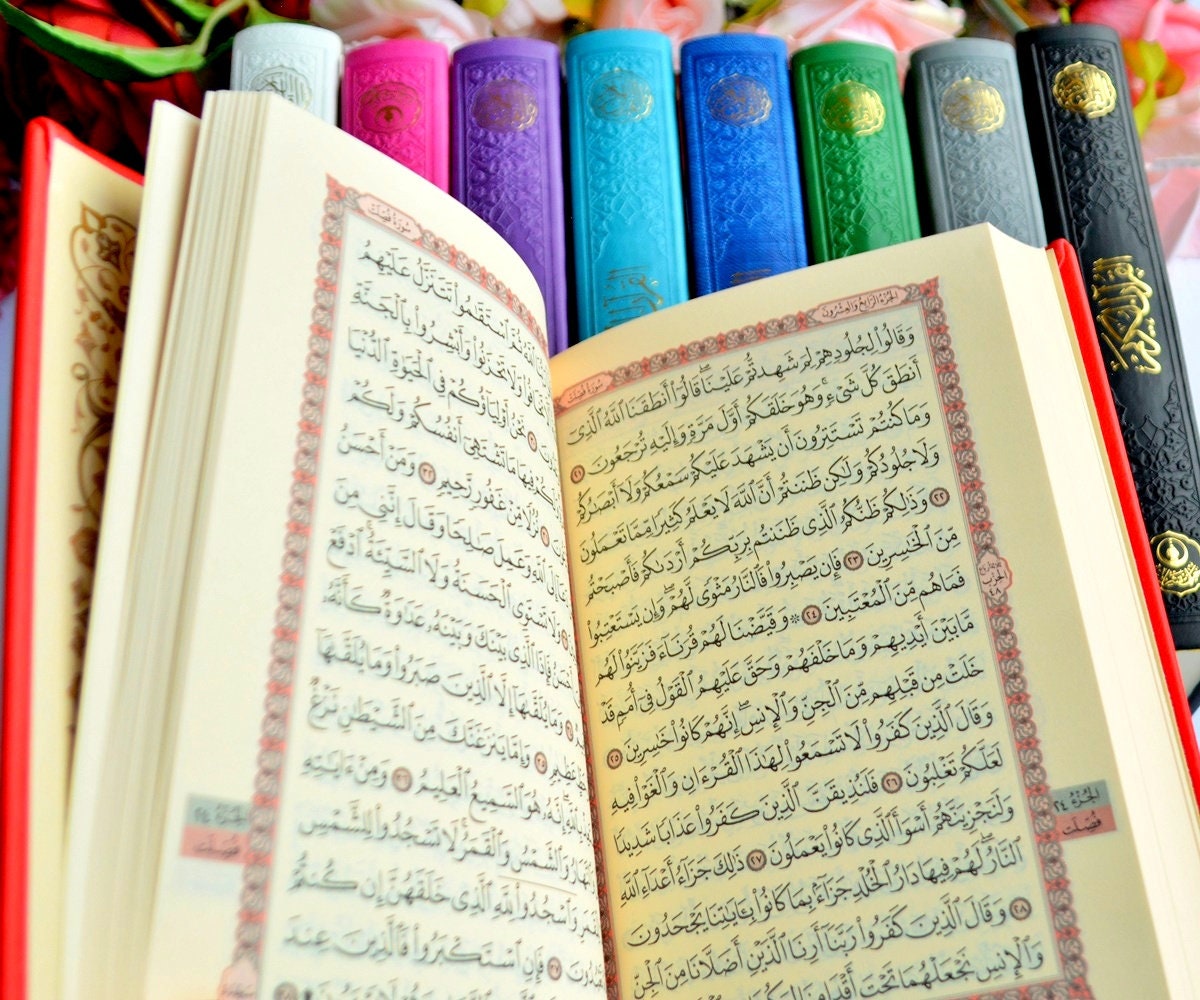 القرآن الكريم
الجزء الرابع والعشرون
سورة فصلت
وَقَالُوا۟ لِجُلُودِهِمْ لِمَ شَهِدتُّمْ عَلَيْنَا ۖ قَالُوٓا۟ أَنطَقَنَا ٱللَّهُ ٱلَّذِىٓ
أَنطَقَ كُلَّ شَىْءٍ وَهُوَ خَلَقَكُمْ أَوَّلَ مَرَّةٍ وَإِلَيْهِ تُرْجَعُونَ ٢١
وَمَا كُنتُمْ تَسْتَتِرُونَ أَن يَشْهَدَ عَلَيْكُمْ سَمْعُكُمْ وَلَآ أَبْصَٰرُكُمْ
وَلَا جُلُودُكُمْ وَلَٰكِن ظَنَنتُمْ أَنَّ ٱللَّهَ لَا يَعْلَمُ كَثِيرًا مِّمَّا تَعْمَلُونَ
٢٢ وَذَٰلِكُمْ ظَنُّكُمُ ٱلَّذِى ظَنَنتُم بِرَبِّكُمْ أَرْدَىٰكُمْ فَأَصْبَحْتُم
مِّنَ ٱلْخَٰسِرِينَ ٢٣ فَإِن يَصْبِرُوا۟ فَٱلنَّارُ مَثْوًى لَّهُمْ ۖ وَإِن يَسْتَعْتِبُوا۟
فَمَا هُم مِّنَ ٱلْمُعْتَبِينَ ٢٤ ۞ وَقَيَّضْنَا لَهُمْ قُرَنَآءَ فَزَيَّنُوا۟ لَهُم
مَّا بَيْنَ أَيْدِيهِمْ وَمَا خَلْفَهُمْ وَحَقَّ عَلَيْهِمُ ٱلْقَوْلُ فِىٓ أُمَمٍ قَدْ
خَلَتْ مِن قَبْلِهِم مِّنَ ٱلْجِنِّ وَٱلْإِنسِ ۖ إِنَّهُمْ كَانُوا۟ خَٰسِرِينَ ٢٥
وَقَالَ ٱلَّذِينَ كَفَرُوا۟ لَا تَسْمَعُوا۟ لِهَٰذَا ٱلْقُرْءَانِ وَٱلْغَوْا۟ فِيهِ
لَعَلَّكُمْ تَغْلِبُونَ ٢٦ فَلَنُذِيقَنَّ ٱلَّذِينَ كَفَرُوا۟ عَذَابًا شَدِيدًا
وَلَنَجْزِيَنَّهُمْ أَسْوَأَ ٱلَّذِى كَانُوا۟ يَعْمَلُونَ ٢٧ ذَٰلِكَ جَزَآءُ أَعْدَآءِ ٱللَّهِ
ٱلنَّارُ ۖ لَهُمْ فِيهَا دَارُ ٱلْخُلْدِ ۖ جَزَآءًۢ بِمَا كَانُوا۟ بِـَٔايَٰتِنَا يَجْحَدُونَ
٢٨ وَقَالَ ٱلَّذِينَ كَفَرُوا۟ رَبَّنَآ أَرِنَا ٱلَّذَيْنِ أَضَلَّانَا مِنَ ٱلْجِنِّ
وَٱلْإِنسِ نَجْعَلْهُمَا تَحْتَ أَقْدَامِنَا
الحزب
٤٨
الجزء ٢٤
فصلت
سورة فصلت
ثُمَّ ٱسْتَقَٰمُوا۟ تَتَنَزَّلُ عَلَيْهِمُ
تَخَافُوا۟ وَلَا تَحْزَنُوا۟ وَأَبْشِرُوا۟ بِٱلْجَنَّةِ
٣٠ نَحْنُ أَوْلِيَآؤُكُمْ فِى ٱلْحَيَوٰةِ ٱلدُّنْيَا
فِيهَا مَا تَشْتَهِىٓ أَنفُسُكُمْ وَلَكُمْ
٣١ نُزُلًا مِّنْ غَفُورٍ رَّحِيمٍ ٣٢ وَمَنْ أَحْسَنُ
إِلَى ٱللَّهِ وَعَمِلَ صَٰلِحًا وَقَالَ إِنَّنِى مِنَ
وَلَا تَسْتَوِى ٱلْحَسَنَةُ وَلَا ٱلسَّيِّئَةُ ۚ ٱدْفَعْ
أَحْسَنُ فَإِذَا ٱلَّذِى بَيْنَكَ وَبَيْنَهُۥ عَدَٰوَةٌ كَأَنَّهُۥ
وَمَا يُلَقَّىٰهَآ إِلَّا ٱلَّذِينَ صَبَرُوا۟ وَمَا يُلَقَّىٰهَآ
عَظِيمٍ ٣٥ وَإِمَّا يَنزَغَنَّكَ مِنَ ٱلشَّيْطَٰنِ نَزْغٌ
بِٱللَّهِ ۖ إِنَّهُۥ هُوَ ٱلسَّمِيعُ ٱلْعَلِيمُ ٣٦ وَمِنْ ءَايَٰتِهِ
وَٱلنَّهَارُ وَٱلشَّمْسُ وَٱلْقَمَرُ ۚ لَا تَسْجُدُوا۟ لِلشَّمْسِ
لِلْقَمَرِ وَٱسْجُدُوا۟ لِلَّهِ ٱلَّذِى خَلَقَهُنَّ إِن كُنتُمْ
تَعْبُدُونَ ٣٧ فَإِنِ ٱسْتَكْبَرُوا۟ فَٱلَّذِينَ عِندَ
الجزء ٢٤
فصلت